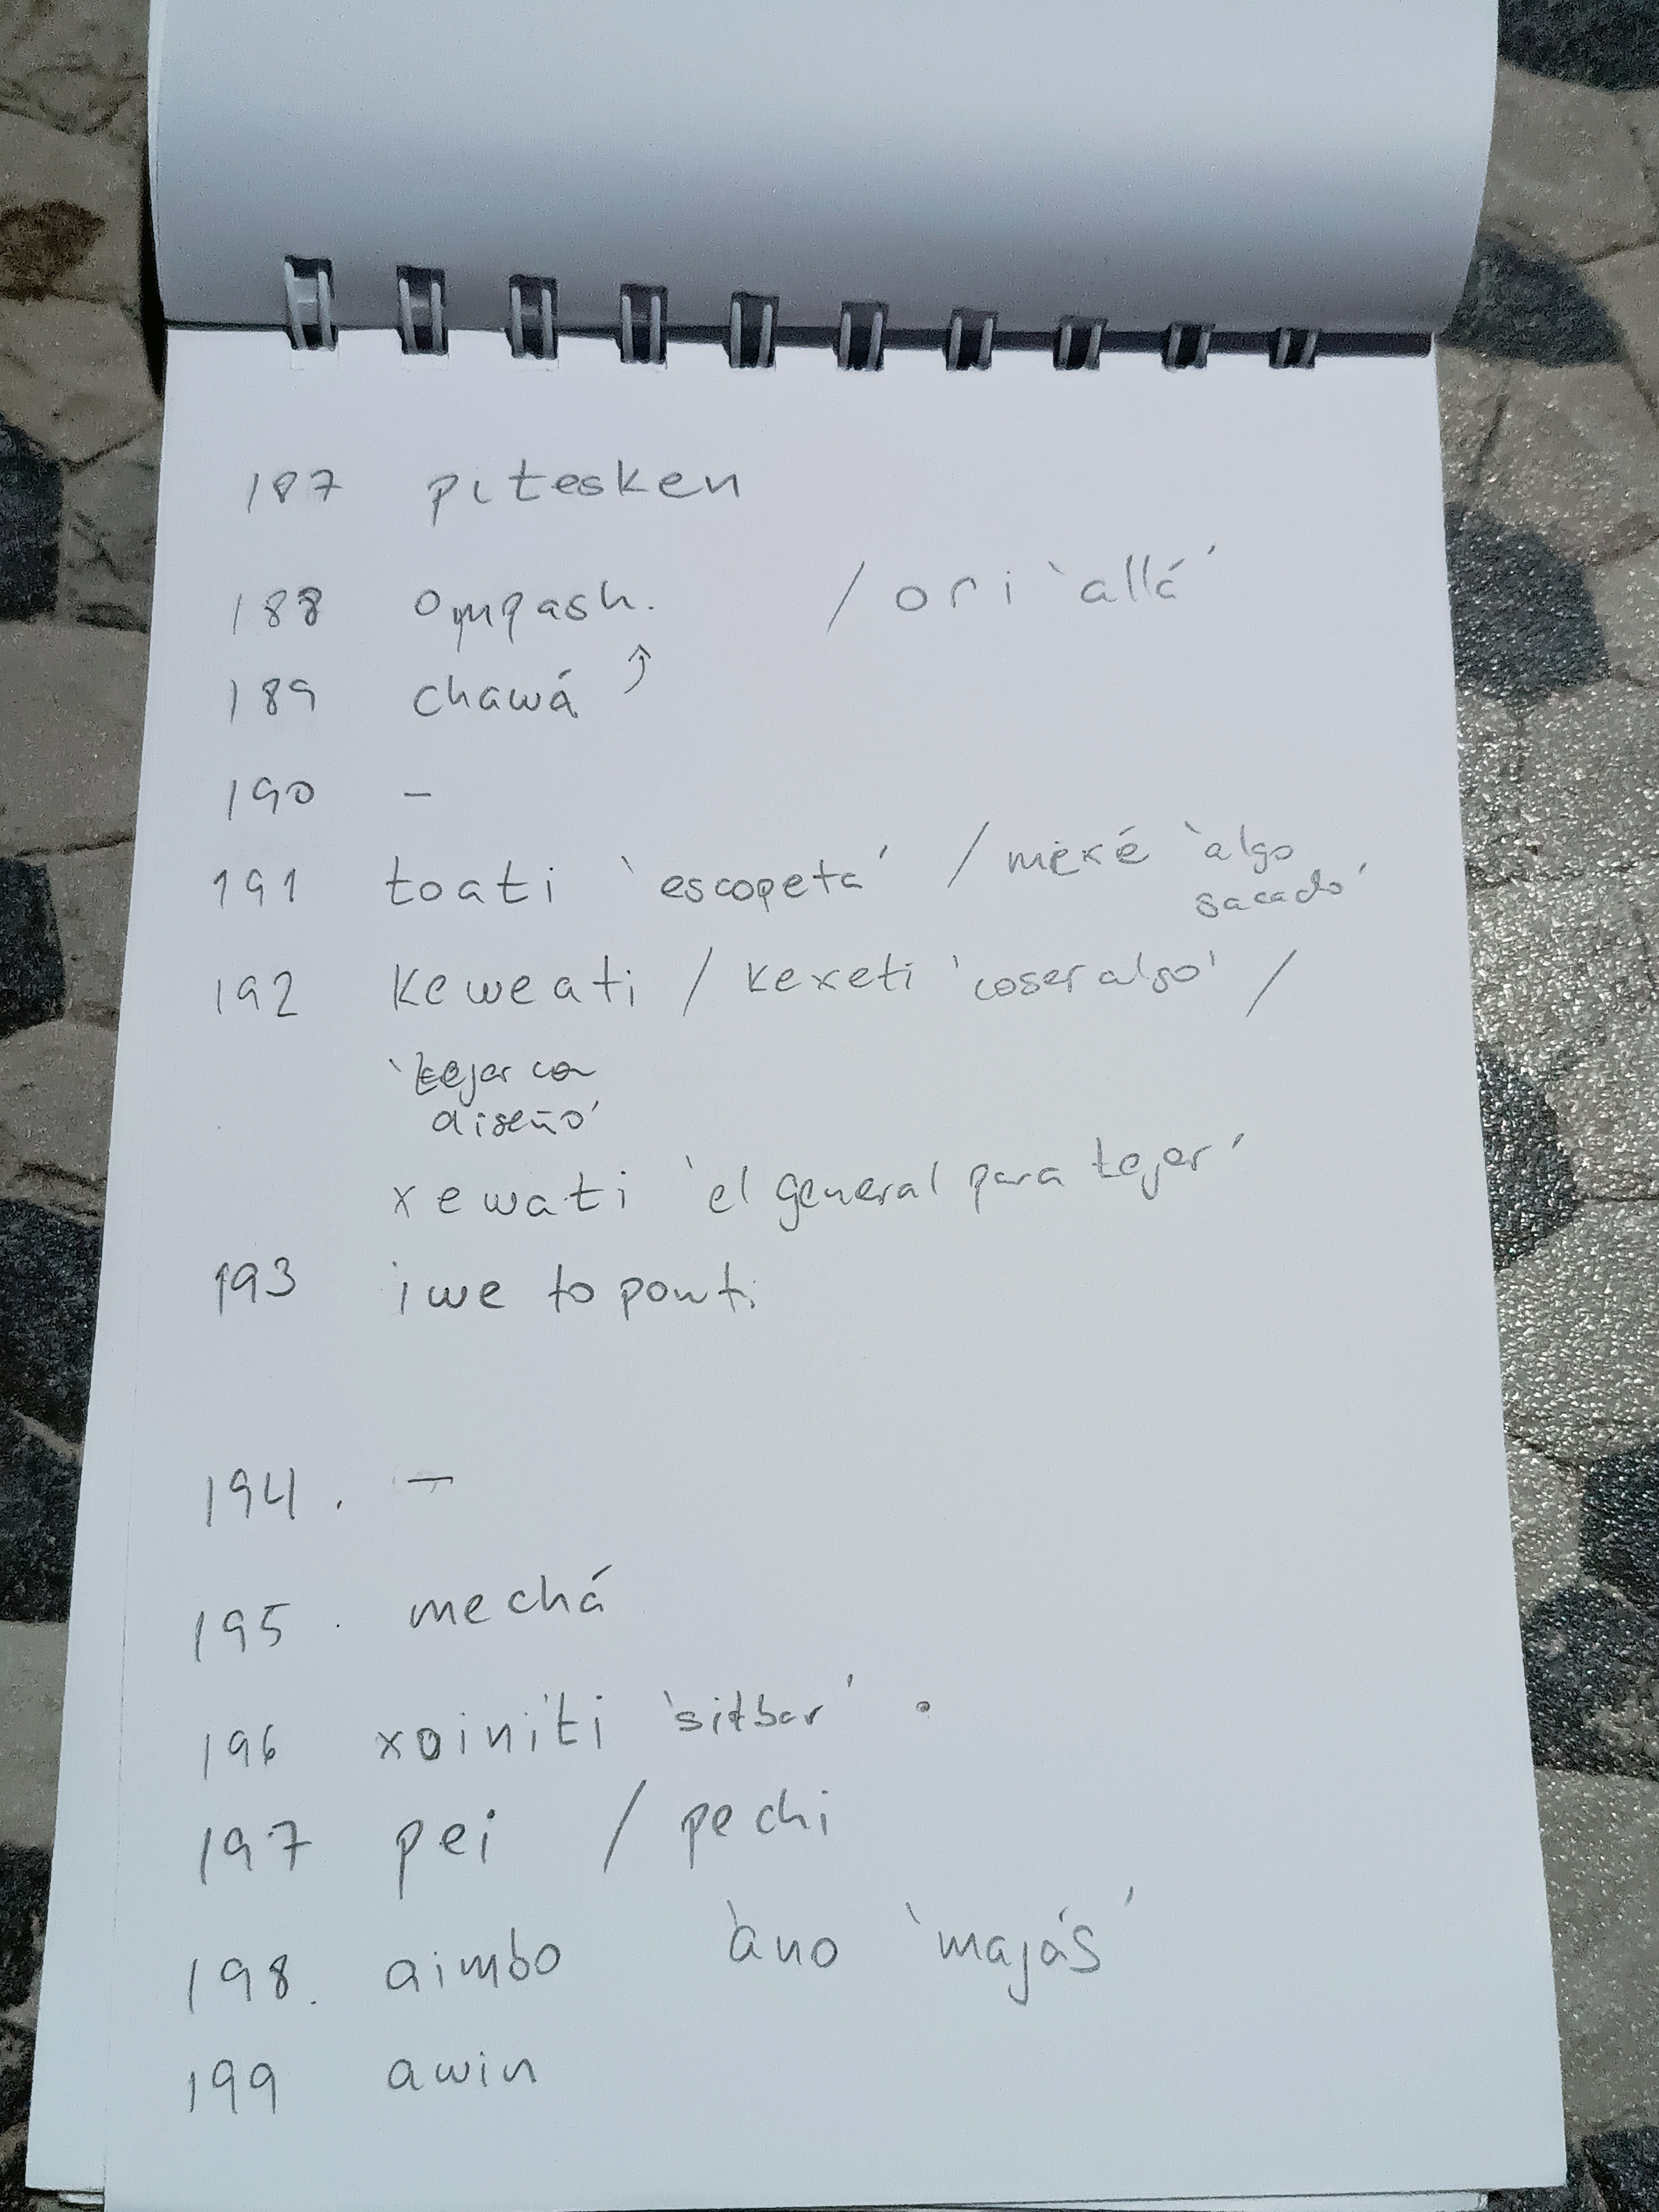 187 pitesken
188 ompash. / ori 'allá'
189 chawá ⤴
190 -
191 toati 'escopeta' / mexé 'algo sacado'
192 keweati / kexeti 'coser algo' /
'tejer con
diseño'
xewati 'el general para tejer'
193 iwe toponti
194. -
195. mechá
196 xoiniti 'silbar' .
197 pei / pechi
198. aimbo ano 'majás'
199 awin